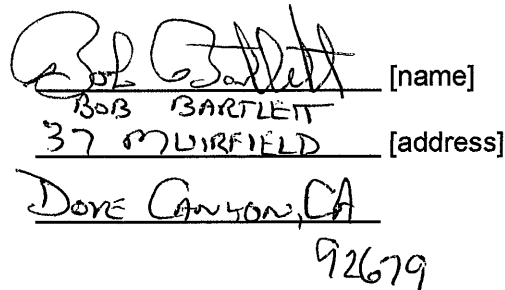 Bob Bartlett [name]
BOB BARTLETT
37 MUIRFIELD [address]
DOVE CANYON, CA
92679